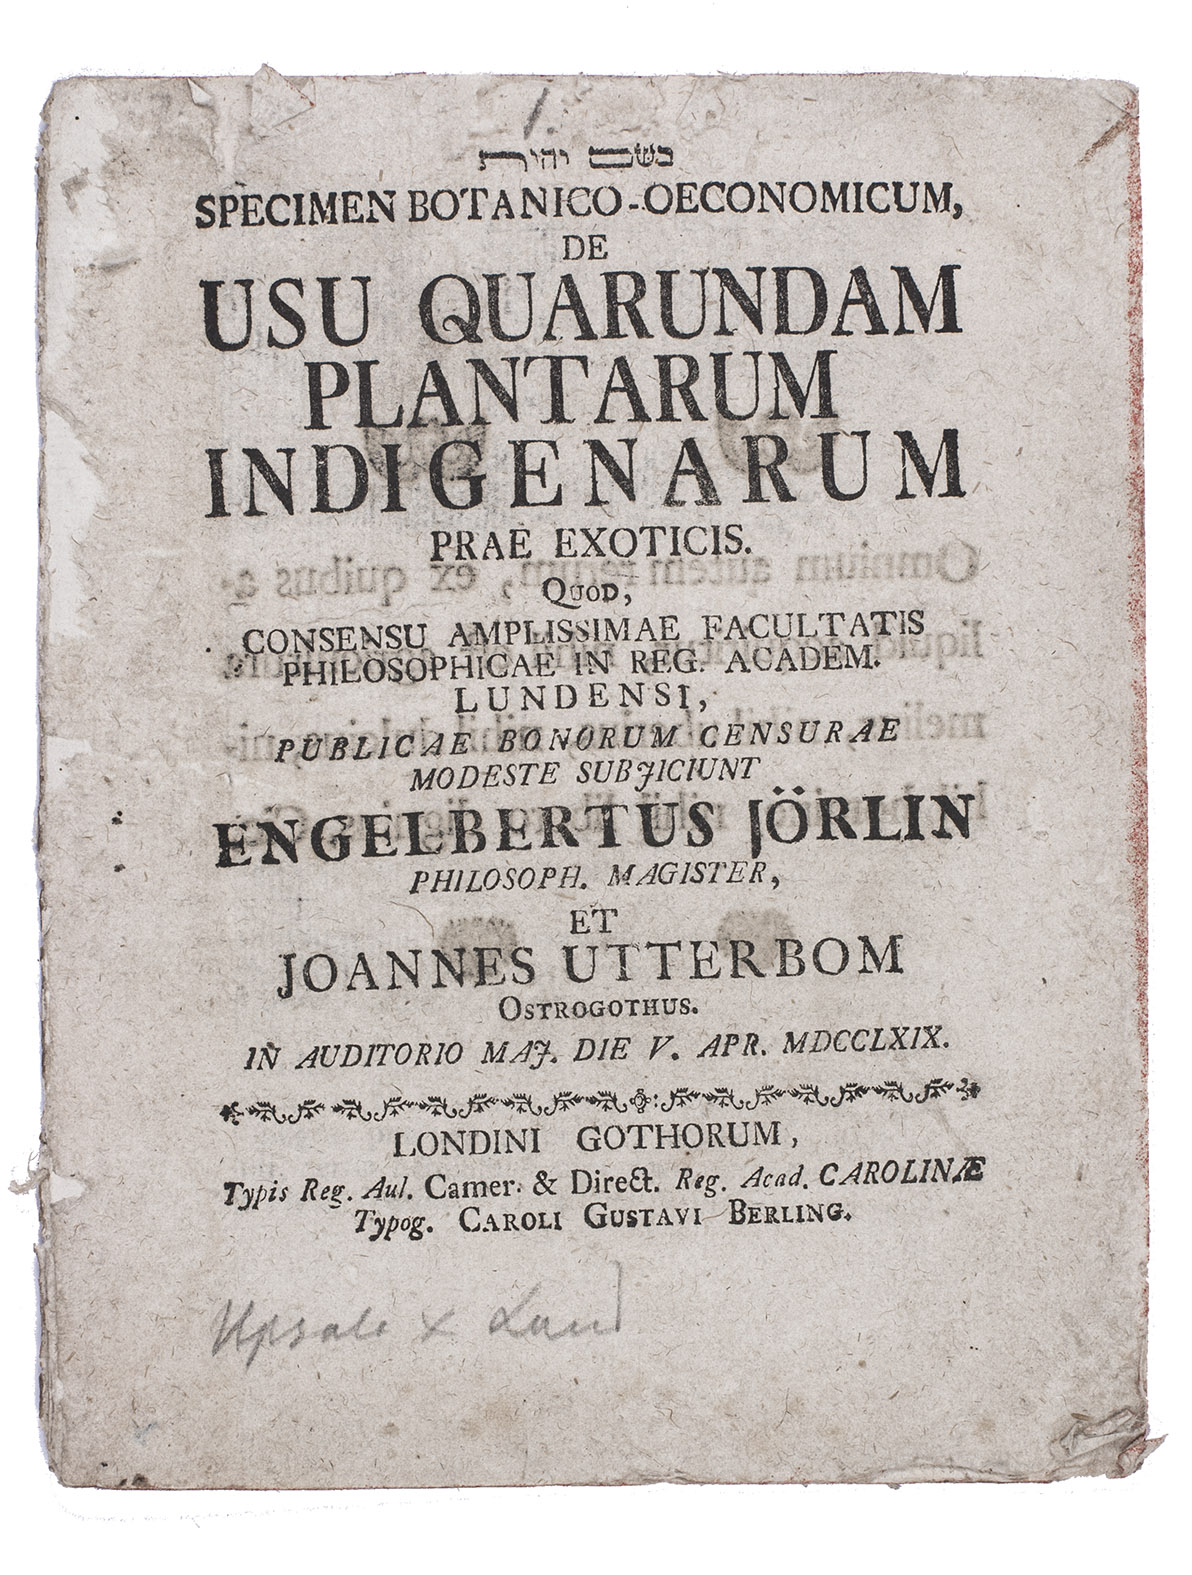 1.
בשם יהוה
SPECIMEN BOTANICO-OECONOMICUM,
DE
USU QUARUNDAM
PLANTARUM
INDIGENARUM
PRAE EXOTICIS.
QUOD,
CONSENSU AMPLISSIMAE FACULTATIS
PHILOSOPHICAE IN REG. ACADEM.
LUNDENSI,
PUBLICAE BONORUM CENSURAE
MODESTE SUBJICIUNT
ENGELBERTUS JÖRLIN
PHILOSOPH. MAGISTER,
ET
JOANNES UTTERBOM
OSTROGOTHUS.
IN AUDITORIO MAJ. DIE V. APR. MDCCLXIX.
LONDINI GOTHORUM,
Typis Reg. Aul. Camer. & Direct. Reg. Acad. CAROLINÆ
Typog. CAROLI GUSTAVI BERLING.
Upsala x Lund